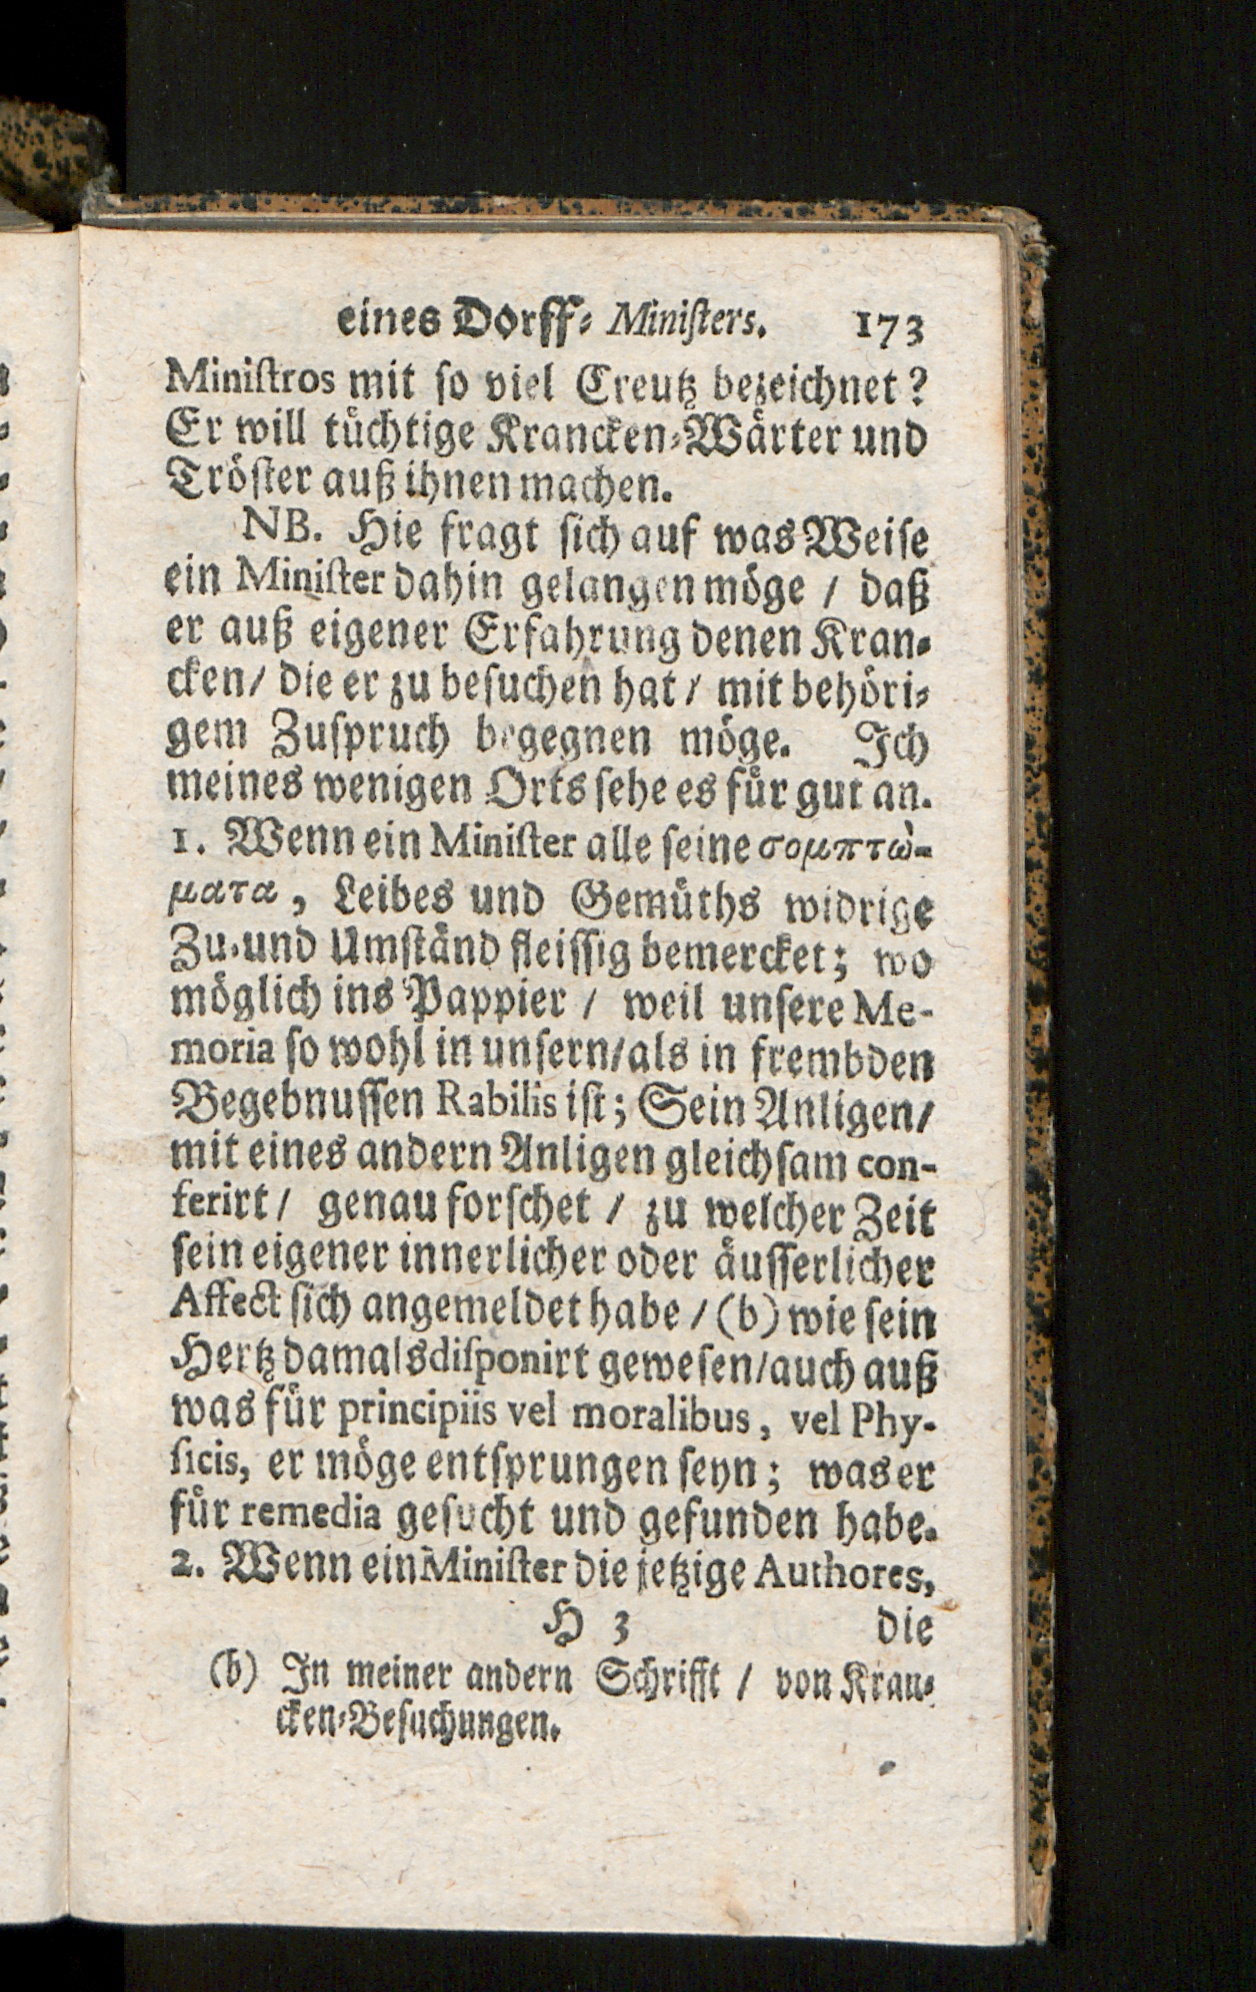 eines Dorff- Miniſters. 173
Miniſtros mit ſo viel Creutz bezeichnet?
Er will tüchtige Krancken-Wärter und
Tröſter auß ihnen machen.
NB. Hie fragt ſich auf was Weiſe
ein Miniſter dahin gelangen möge / daß
er auß eigener Erfahrung denen Kran-
cken/ die er zu beſuchen hat / mit behöri-
gem Zuſpruch begegnen möge. Ich
meines wenigen Orts ſehe es für gut an.
1. Wenn ein Miniſter alle ſeine σομπτὼ-
ματα, Leibes und Gemüths widrige
Zu-und Umſtänd fleiſſig bemercket; wo
möglich ins Pappier / weil unſere Me-
moria ſo wohl in unſern/als in frembden
Begebnuſſen Rabilis iſt; Sein Anligen/
mit eines andern Anligen gleichſam con-
ferirt / genau forſchet / zu welcher Zeit
ſein eigener innerlicher oder äuſſerlicher
Affect ſich angemeldet habe / (b) wie ſein
Hertz damals diſponirt geweſen/auch auß
was für principiis vel moralibus, vel Phy-
ſicis, er möge entſprungen ſeyn; was er
für remedia geſucht und gefunden habe.
2. Wenn ein Miniſter die jetzige Authores,
H 3 die
(b) In meiner andern Schrifft / von Kran-
cken-Beſuchungen.